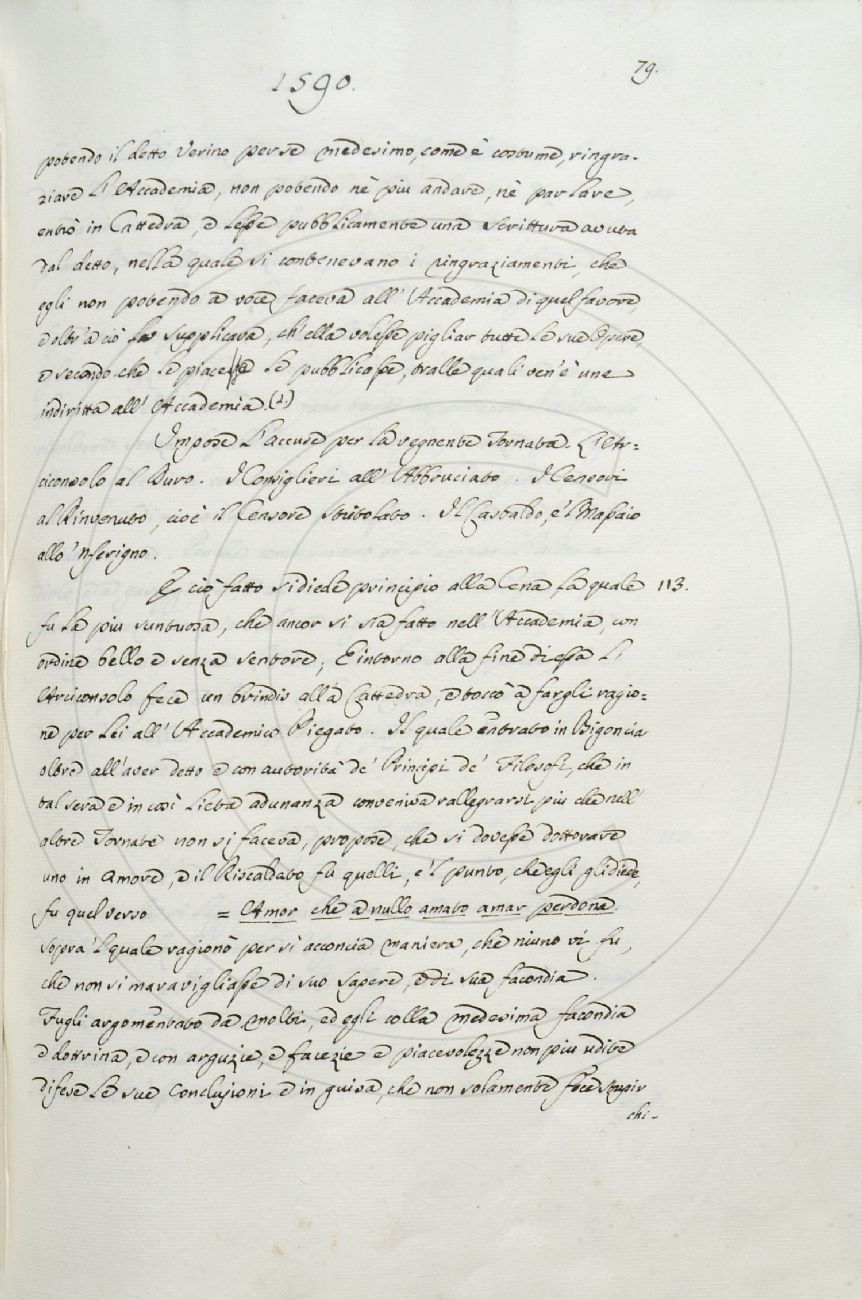 1590.
79.
potendo il detto Verino per se medesimo, come è costume, ringra-
ziare l'Accademia, non potendo nè piu andare, nè parlare,
entrò in Cattedra, e lesse pubblicamente una scrittura avuta
dal detto, nella quale si contenevano i ringraziamenti, che
egli non potendo a voce, faceva all'Accademia di quel favore,
e oltr'a ciò la supplicava, ch'ella volesse pigliar tutte le sue Opere,
e secondo che le piacesse le pubblicasse, tralle quali ven'è una
indiritta all'Accademia.
Impose l'accuse per la vegnente Tornata. L'Ar=
ciconsolo al Duro. I Consiglieri all'Abbruciato. I Censori
al Rinvenuto, cioè il Censore Stritolato. Il Castaldo, e'l Massaio
allo 'nferigno.
E ciò fatto si diede principio alla Cena, la quale 113.
fu la piu suntuosa, che ancor si sia fatto nell'Accademia, con
ordine bello e senza sentore; E intorno alla fine di essa l'
Arciconsolo fece un brindis alla Cattedra, e toccò a fargli ragio=
ne per lei all'Accademico Piegato. Il quale entrato in Bigoncia
oltre all'aver detto e con autorità de' Principi de' Filosofi, che in
tal sera e in così lieta adunanza conveniva rallegrarsi piu che nell'
altre Tornate non si faceva, propose, che si dovesse dottorare
uno in Amore, e il Riscaldato fu quelli, e'l punto, che egli gli diede,
fu quel verso = Amor che a nullo amato amar perdona.
sopra 'l quale ragionò per sì acconcia maniera, che niuno vi fu,
che non si maravigliasse di suo sapere, e di sua facondia.
Fugli argomentato da molti, ed egli colla medesima facondia
e dottrina, e con arguzie, e facezie e piacevolezze non piu udite
difese le sue Conclusioni e in guisa, che non solamente fece stupir
chi-